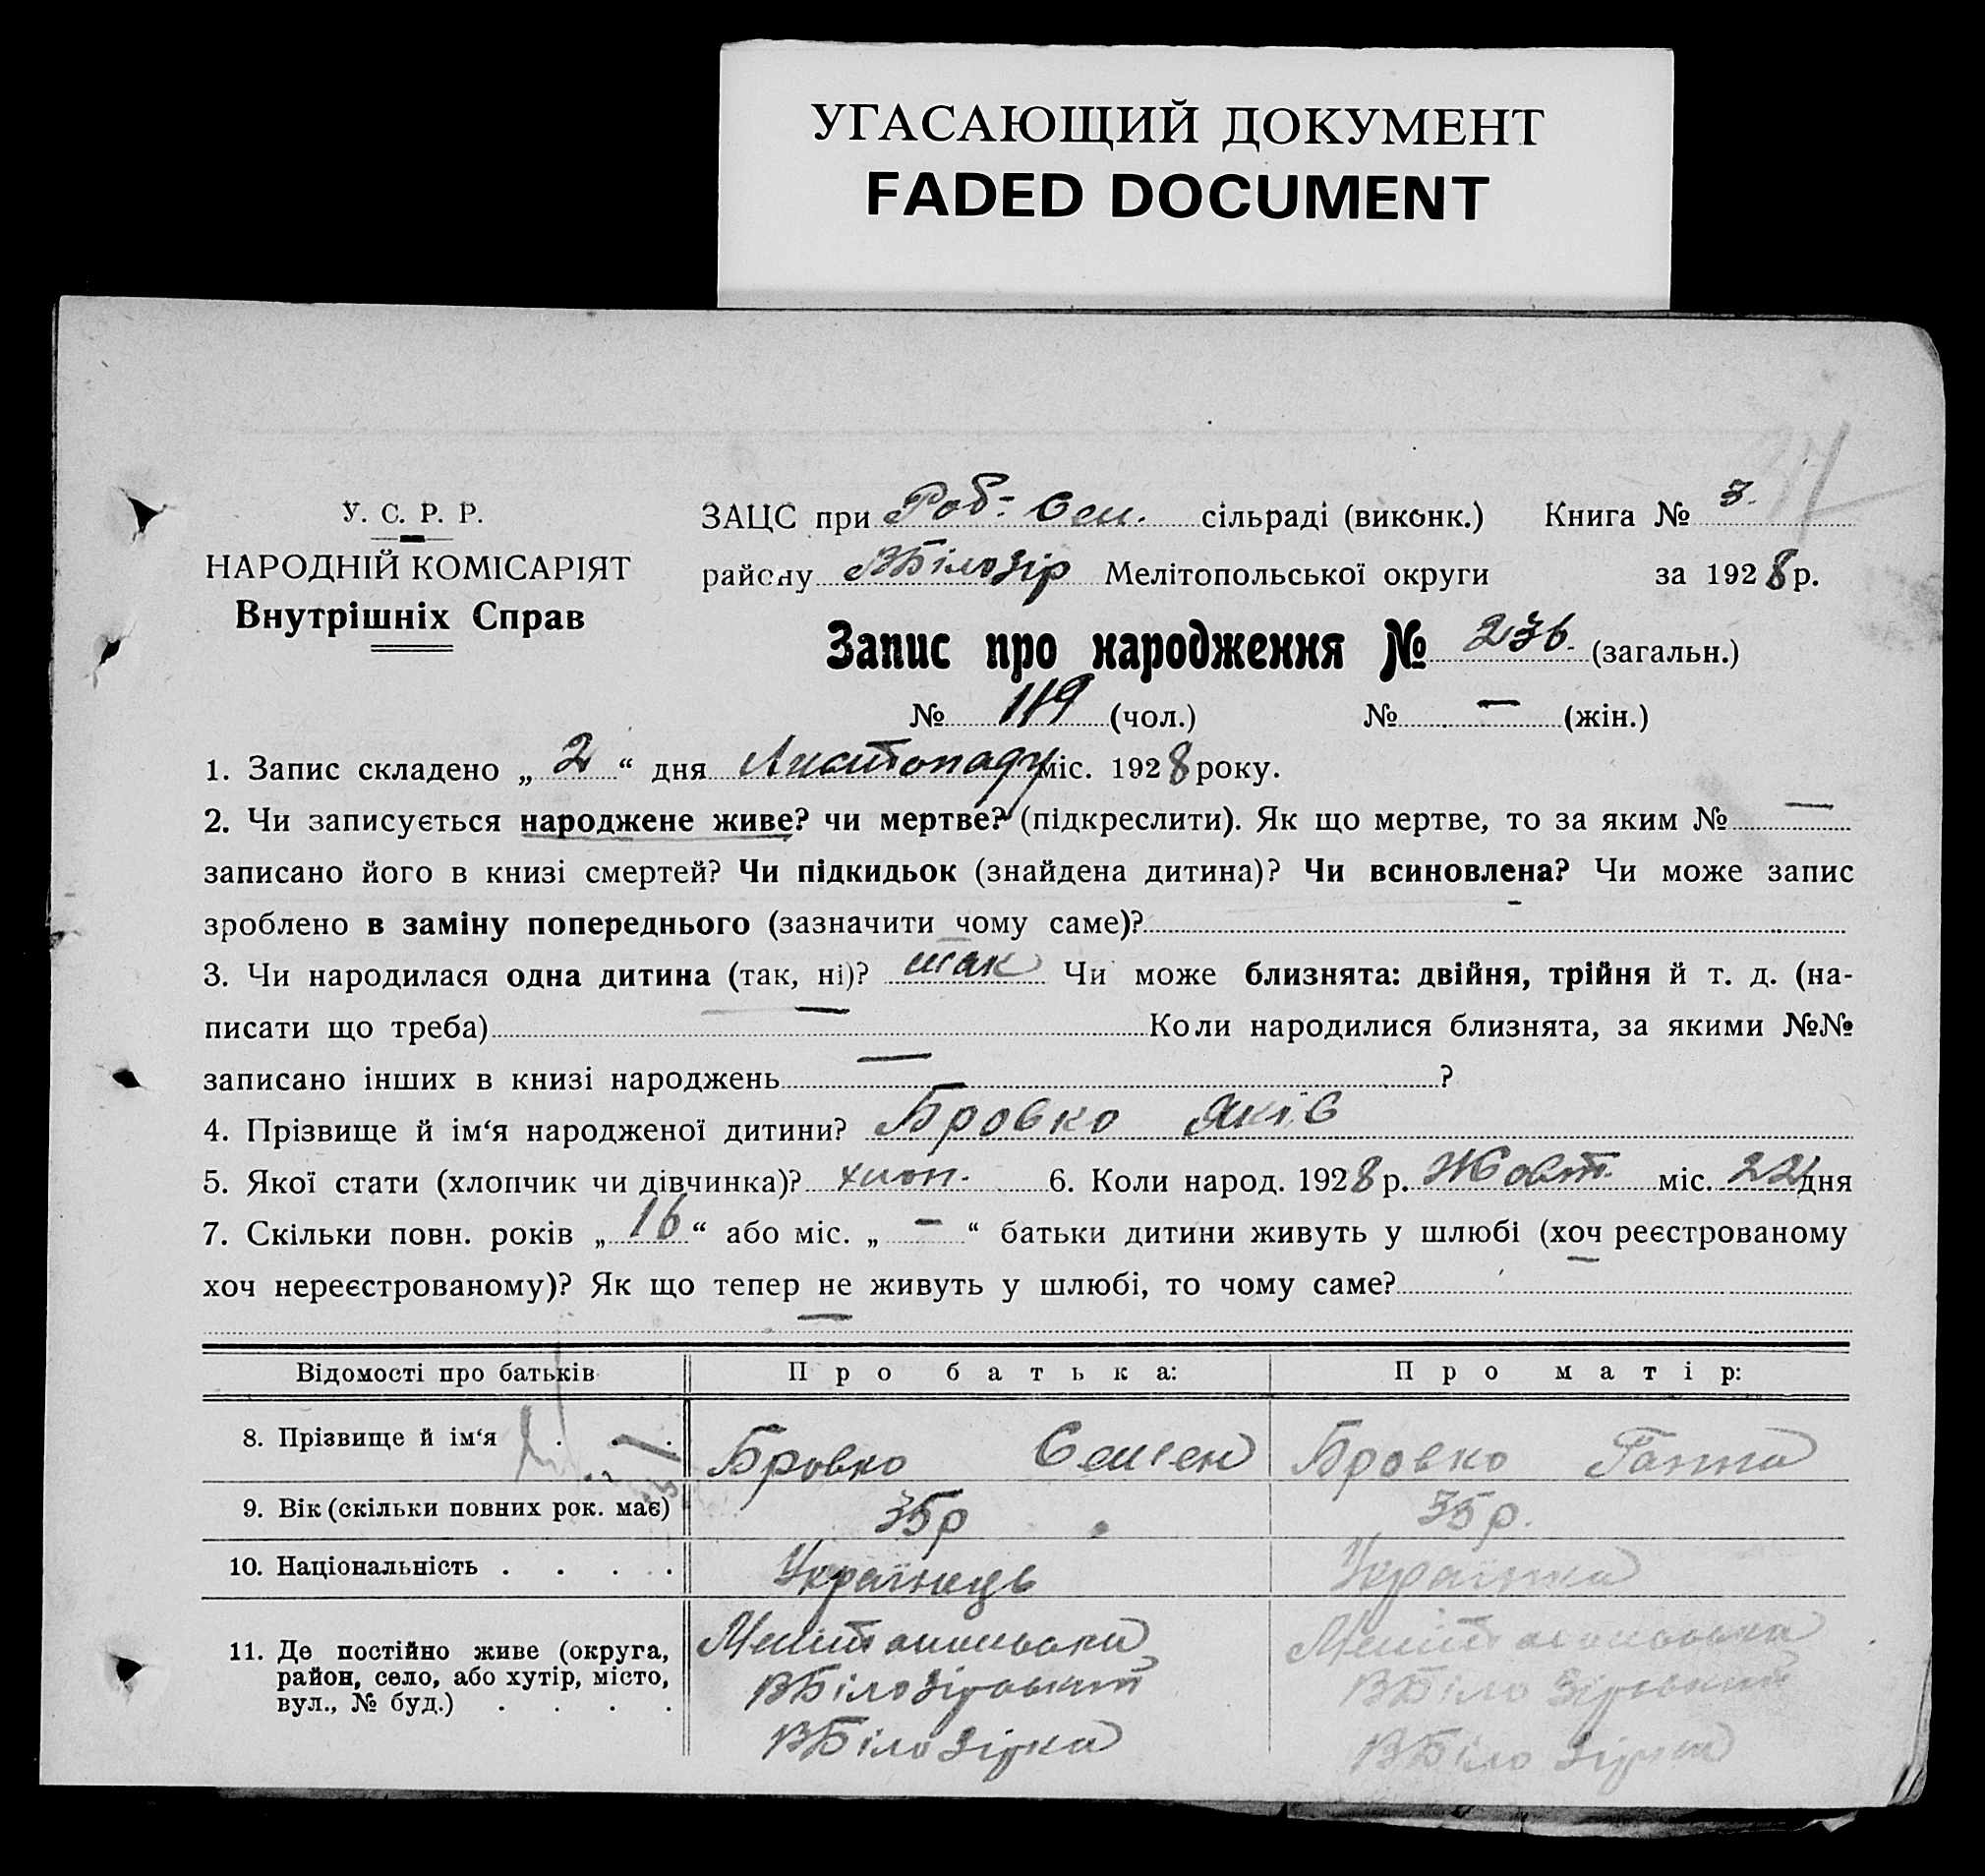 УГАСАЮЩИЙ ДОКУМЕНТ
FADED DOCUMENT
У. С. Р. Р.
НАРОДНІЙ КОМІСАРІЯТ
Внутрішніх Справ
ЗАЦС при Роб- Сел. сільраді (виконк.) Книга № 3.
району ВБілозір Мелітопольської округи за 1928 р.
Запис про народження № 236 (загальн.)
№ 119 (чол.) № — (жін.)
1. Запис складено „ 2 “ дня Листопаду міс. 1928 року.
2. Чи записується народжене живе? чи мертве? (підкреслити). Як що мертве, то за яким № —
записано його в книзі смертей? Чи підкидьок (знайдена дитина)? Чи всиновлена? Чи може запис
зроблено в заміну попереднього (зазначити чому саме)? —
3. Чи народилася одна дитина (так, ні)? так Чи може близнята: двійня, трійня й т. д. (на-
писати що треба) — Коли народилися близнята, за якими №№
записано інших в книзі народжень — ?
4. Прізвище й ім‘я народженої дитини? Бровко Яків
5. Якої стати (хлопчик чи дівчинка)? хлоп. 6. Коли народ. 1928 р. Жовт. міс. 22 дня
7. Скільки повн. років „ 16 “ або міс. „ — “ батьки дитини живуть у шлюбі (хоч реєстрованому
хоч нереєстрованому)? Як що тепер не живуть у шлюбі, то чому саме? —
—
Відомості про батьків Про батька: Про матір:
8. Прізвище й ім‘я . . . Бровко Семен Бровко Ганна
9. Вік (скільки повних рок. має) 35р 35р.
10. Національність . . . . Українець Українка
11. Де постійно живе (округа, Мелітопольська Мелітопольська
район, село, або хутір, місто, ВБілозірський ВБілозірський
вул., № буд.) . . . . ВБілозірка ВБілозірка